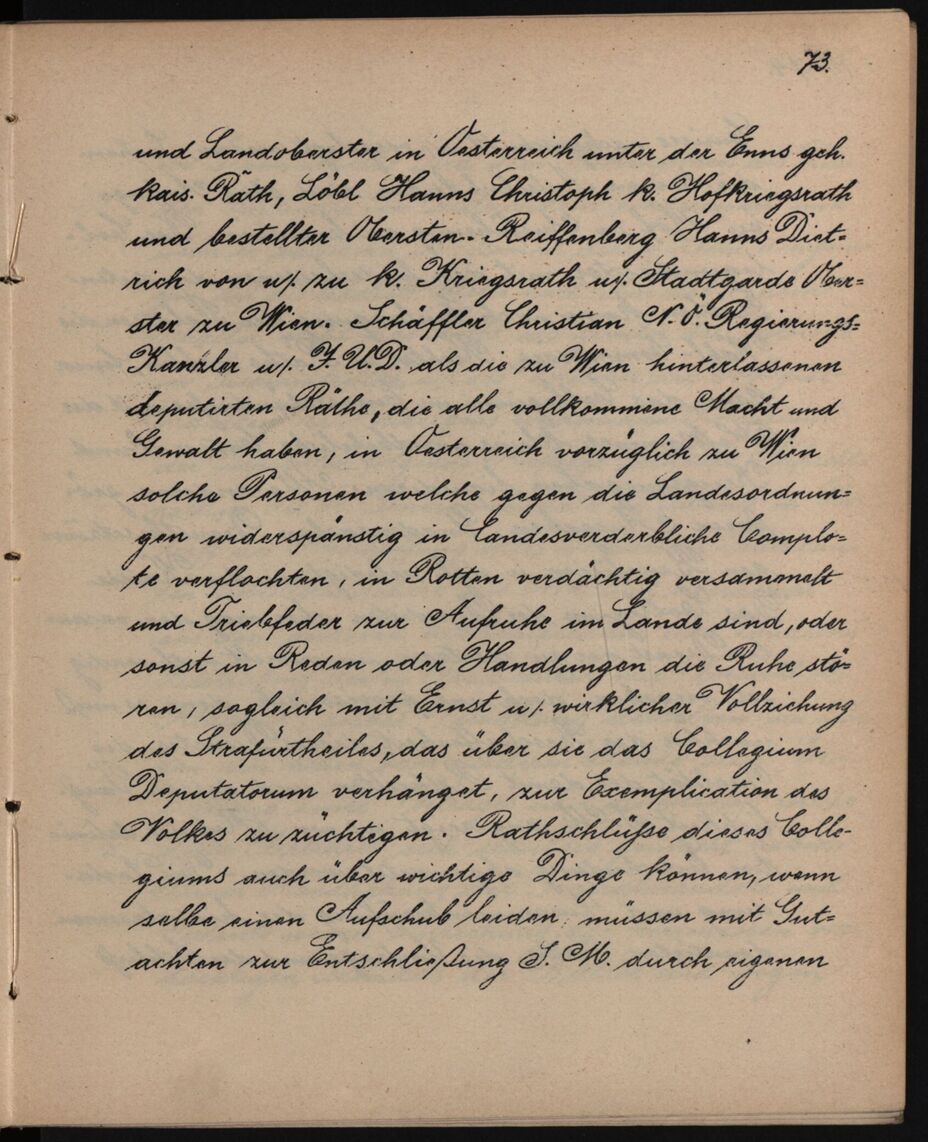 73.
und Landoberster in Oesterreich unter der Enns geh.
kais. Räth, Löbl Hanns Christoph k. Hofkriegsrath
und bestellter Obersten. Reiffenberg Hanns Diet=
rich von u/. zu k. Kriegsrath u/. Stadtgarde Ober=
ster zu Wien. Schäffler Christian N. Ö. Regierungs=
Kanzler u/. J. U. D. als die zu Wien hinterlassenen
deputirten Räthe, die alle vollkommene Macht und
Gewalt haben, in Oesterreich vorzüglich zu Wien
solche Personen welche gegen die Landesordnun=
gen widerspänstig in landesverderbliche Complo=
te verflochten, in Rotten verdächtig versammelt
und Triebfeder zur Aufruhe im Lande sind, oder
sonst in Reden oder Handlungen die Ruhe stö=
ren, sogleich mit Ernst u/. wirklicher Vollziehung
des Strafürtheiles, das über sie das Collegium
Deputatorum verhänget, zur Exemplication des
Volkes zu züchtigen. Rathschlüße dieses Colle-
giums auch über wichtige Dinge können, wenn
selbe einen Aufschub leiden, müssen mit Gut=
achten zur Entschließung S. M. durch eigenen